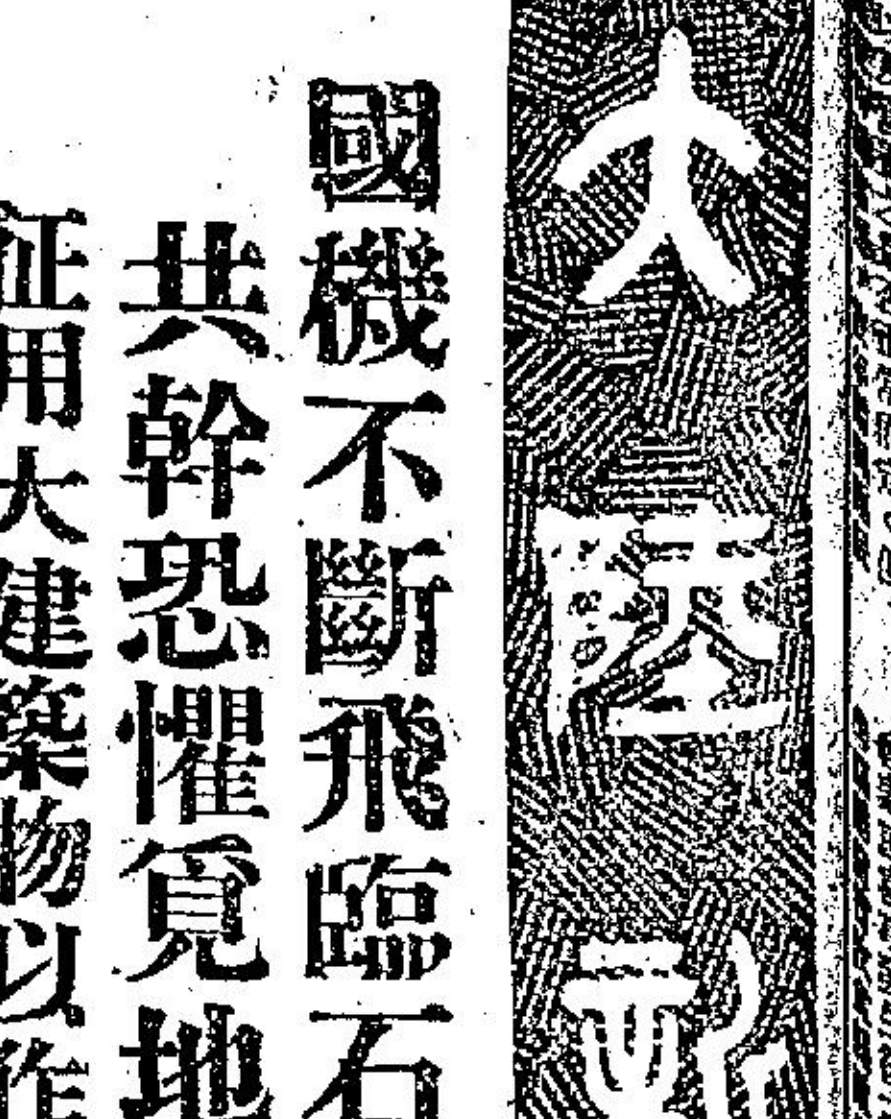 大陸新
國機不斷飛臨石
共幹恐懼覓地
征用大建築物以作